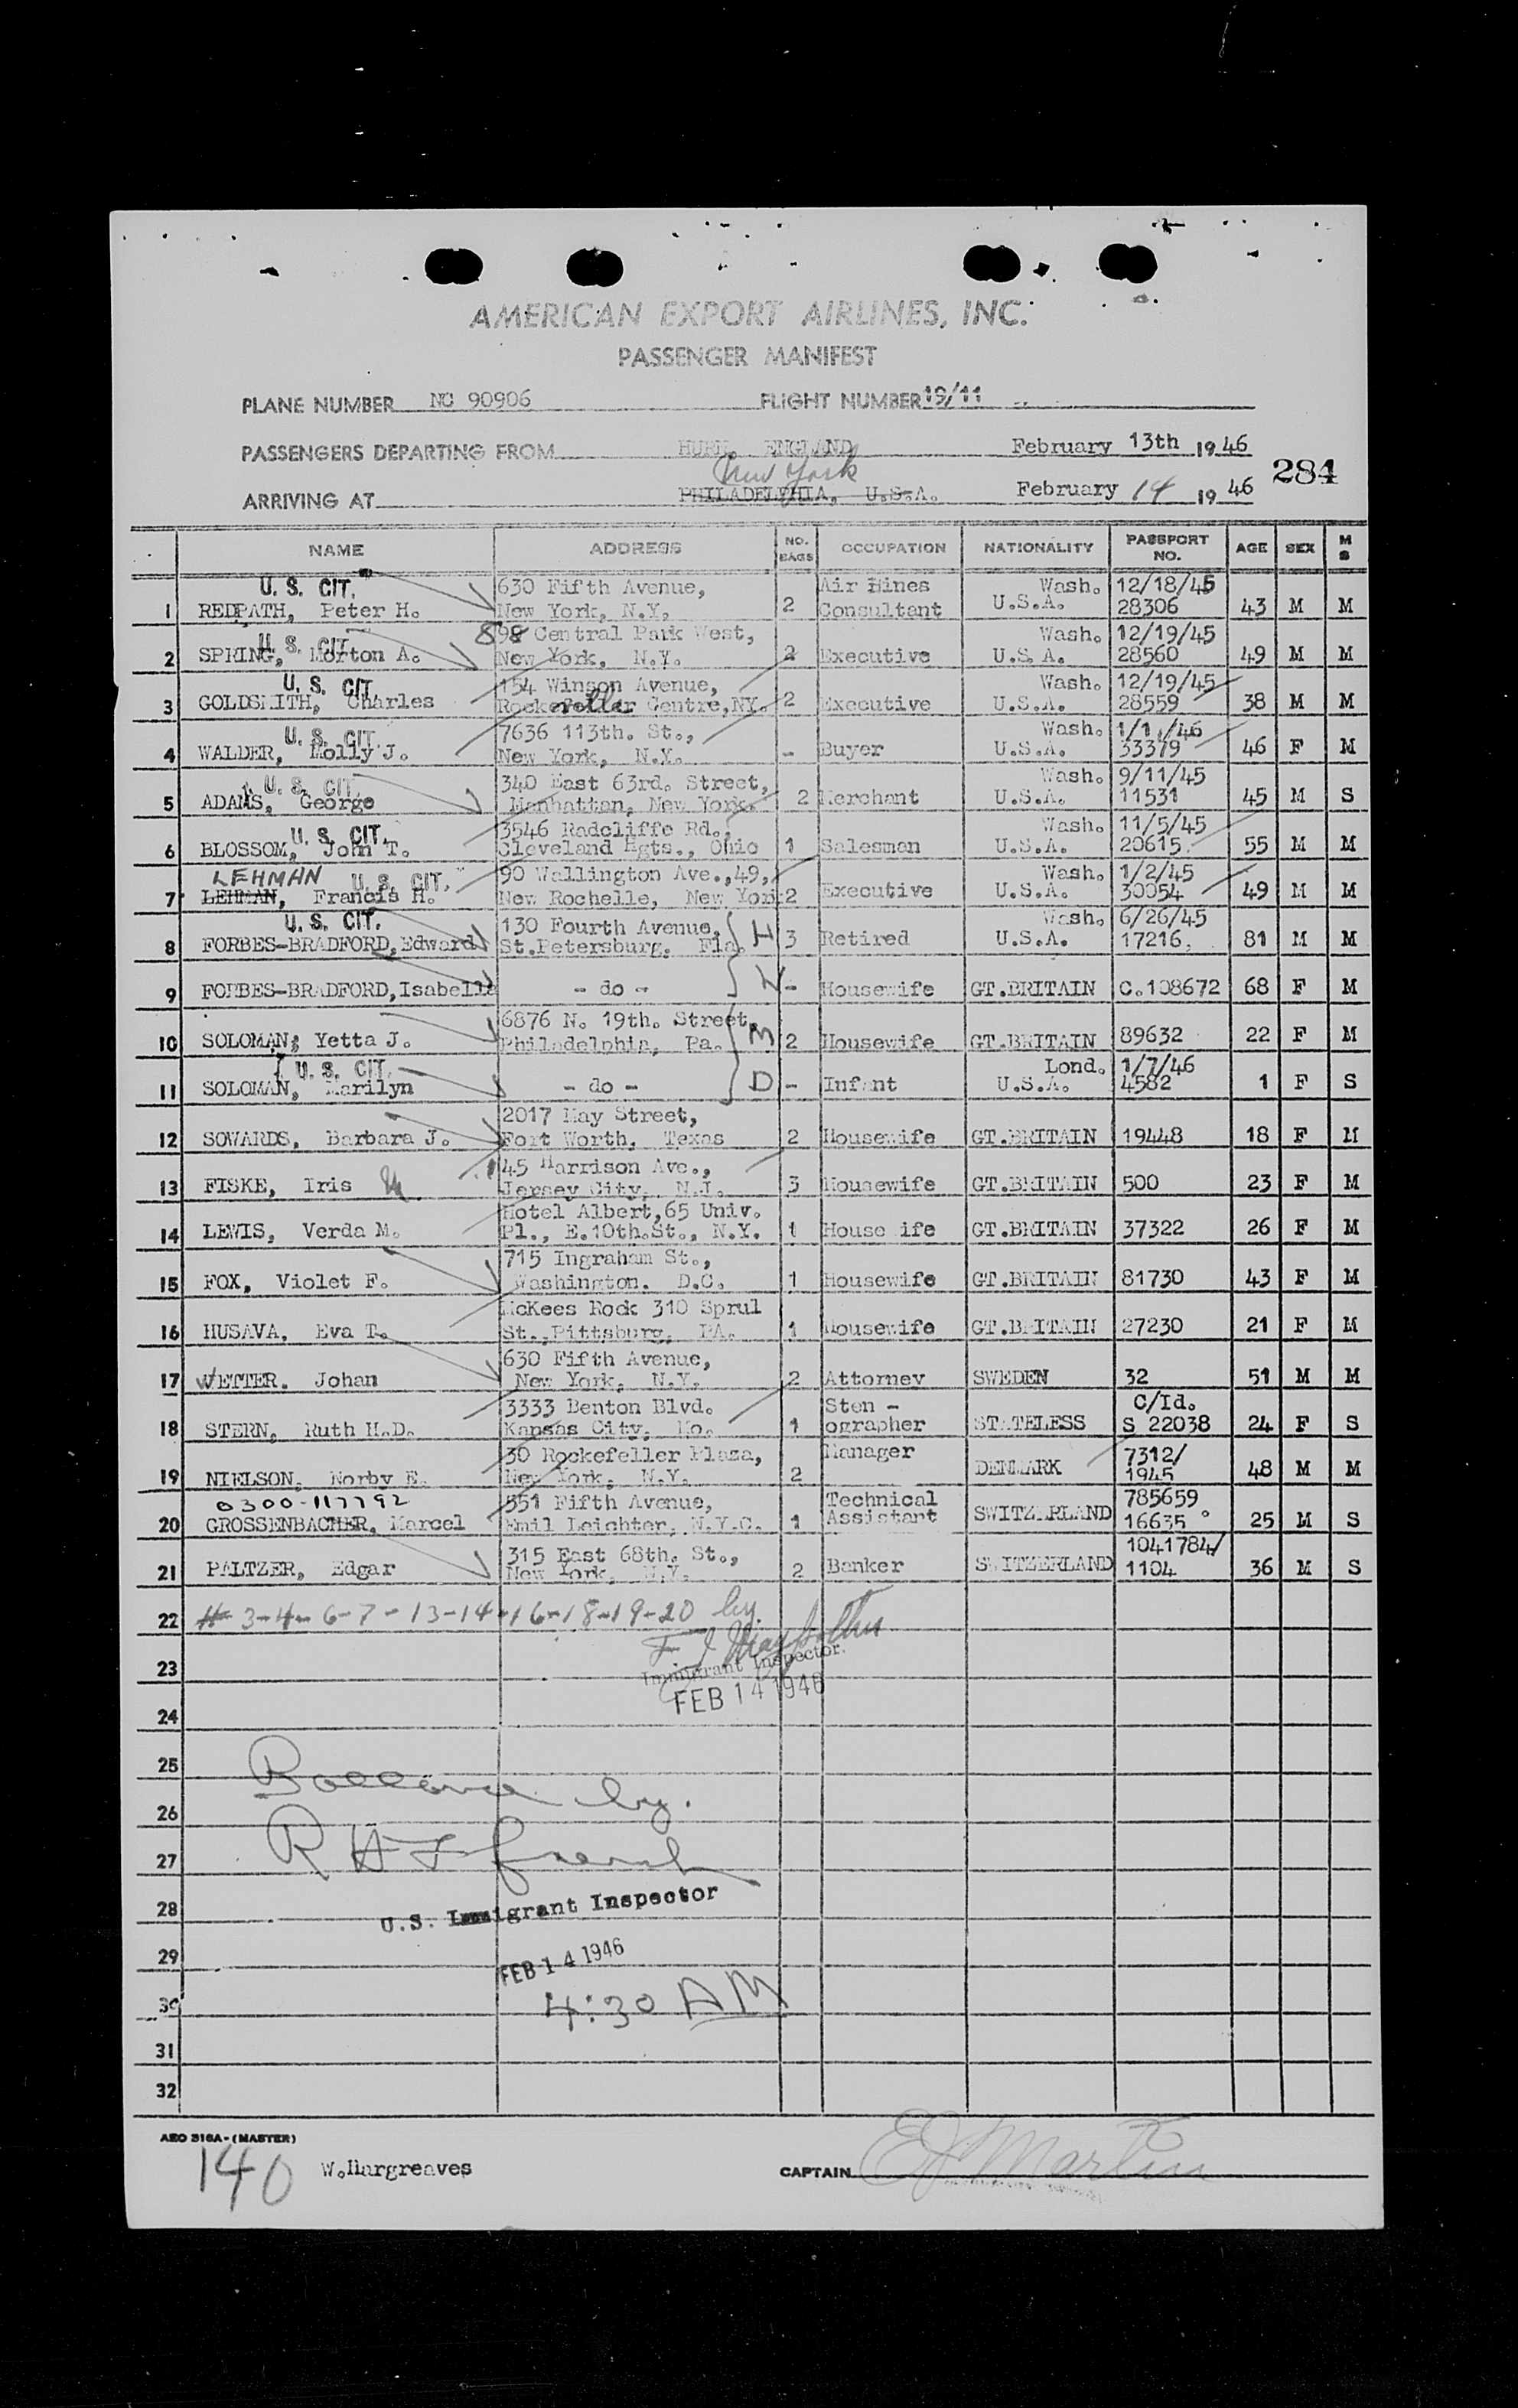 AMERICAN EXPORT AIRLINES, INC.
PASSENGER MANIFEST
PLANE NUMBER NC 90906 FLIGHT NUMBER 19/11
PASSENGERS DEPARTING FROM HURN, ENGLAND February 13th 1946
New York
284
ARRIVING AT PHILADELPHIA, U.S.A. February 14 1946
NAME ADDRESS NO. BAGS OCCUPATION NATIONALITY PASSPORT NO. AGE SEX M S
U. S. CIT. 630 Fifth Avenue, Air Lines Wash. 12/18/45
1 REDPATH, Peter H. New York, N.Y. 2 Consultant U.S.A. 28306 43 M M
U. S. CIT. 898 Central Park West, Wash. 12/19/45
2 SPRING, Morton A. New York, N.Y. 2 Executive U.S.A. 28560 49 M M
U. S. CIT. 154 Winson Avenue, Wash. 12/19/45
3 GOLDSMITH, Charles Rockefeller Centre, NY. 2 Executive U.S.A. 28559 38 M M
U. S. CIT. 7636 113th. St., Wash. 1/1 /46
4 WALDER, Molly J. New York, N.Y. - Buyer U.S.A. 33379 46 F M
U. S. CIT. 340 East 63rd. Street, Wash. 9/11/45
5 ADAMS, George Manhattan, New York. 2 Merchant U.S.A. 11531 45 M S
U. S. CIT. 3546 Radcliffe Rd., Wash. 11/5/45
6 BLOSSOM, John T. Cleveland Hgts., Ohio 1 Salesman U.S.A. 20615 55 M M
LEHMAN U. S. CIT. 90 Wallington Ave.,49, Wash. 1/2/45
7 LEHMAN, Francis H. New Rochelle, New York 2 Executive U.S.A. 30054 49 M M
U. S. CIT. 130 Fourth Avenue, Wash. 6/26/45
8 FORBES-BRADFORD, Edward St.Petersburg. Fla. H 3 Retired U.S.A. 17216. 81 M M
9 FORBES-BRADFORD, Isabelle - do - W - Housewife GT.BRITAIN C.108672 68 F M
6876 N. 19th. Street,
10 SOLOMAN, Yetta J. Philadelphia, Pa. M 2 Housewife GT.BRITAIN 89632 22 F M
U. S. CIT. Lond. 1/7/46
11 SOLOMAN, Marilyn - do - D - Infant U.S.A. 4582 1 F S
2017 May Street,
12 SOWARDS, Barbara J. Fort Worth, Texas 2 Housewife GT.BRITAIN 19448 18 F M
145 Harrison Ave.,
13 FISKE, Iris M Jersey City, N.J. 3 Housewife GT.BRITAIN 500 23 F M
Hotel Albert,65 Univ.
14 LEWIS, Verda M. Pl., E.10th.St., N.Y. 1 House ife GT.BRITAIN 37322 26 F M
715 Ingraham St.,
15 FOX, Violet F. Washington. D.C. 1 Housewife GT.BRITAIN 81730 43 F M
McKees Rock 310 Sprul
16 HUSAVA, Eva T. St.,Pittsburg, PA. 1 Housewife GT.BRITAIN 27230 21 F M
630 Fifth Avenue,
17 WETTER. Johan New York, N.Y. 2 Attorney SWEDEN 32 51 M M
3333 Benton Blvd. Sten - C/Id.
18 STERN, Ruth H.D. Kansas City, Mo. 1 ographer STATELESS S 22038 24 F S
30 Rockefeller Plaza, Manager 7312/
19 NIELSON, Norby E. New York, N.Y. 2 DENMARK 1945 48 M M
0300-117792 551 Fifth Avenue, Technical 785659
20 GROSSENBACHER, Marcel Emil Leichter, N.Y.C. 1 Assistant SWITZERLAND 16635 25 M S
315 East 68th. St., 1041784/
21 PALTZER, Edgar New York, N.Y. 2 Banker SWITZERLAND 1104 36 M S
22 # 3-4-6-7-13-14-16-18-19-20 by.
23 Immigrant Inspector.
FEB 14 1946
24
25
Ballance by.
26
27 R H French
28 U.S. Immigrant Inspector
29 FEB 14 1946
30 4:30 AM
31
32
AEO 316A-(MASTER)
140 W.Hargreaves CAPTAIN E J Martin